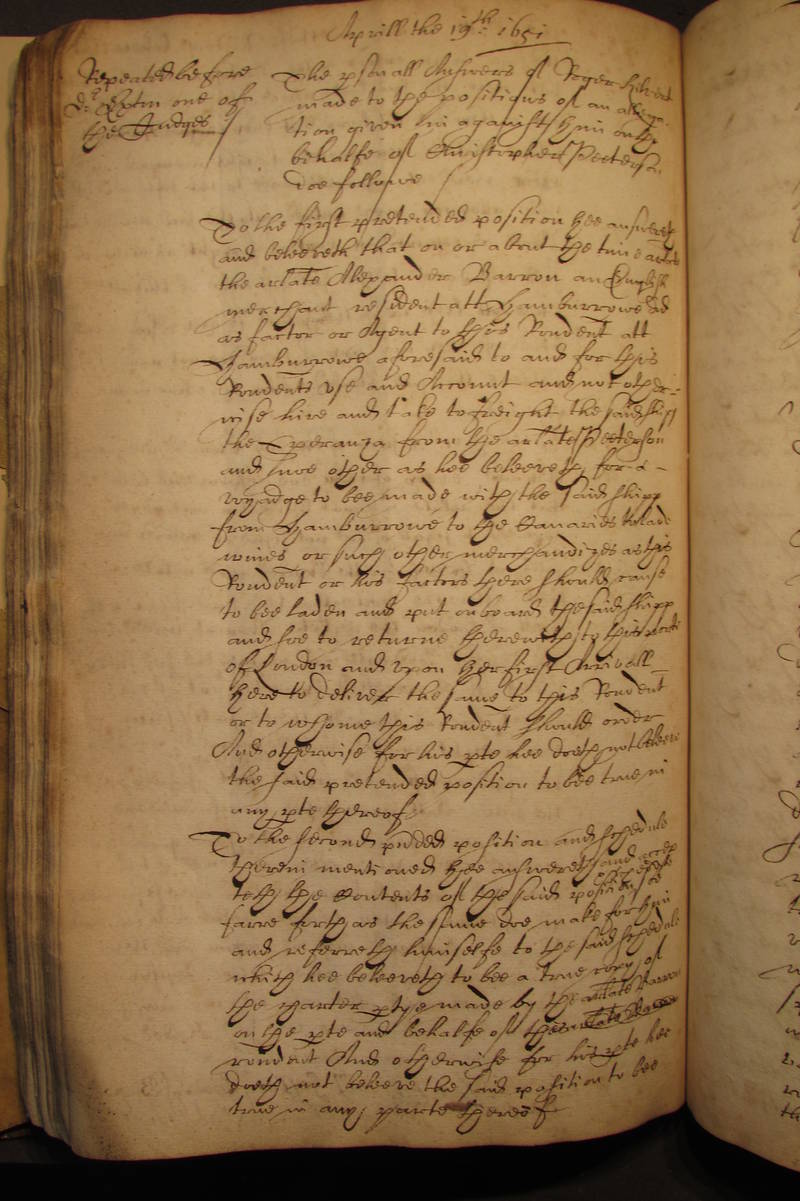 Aprill the 19th: 1651
Repeated before
Dr. Exton one of
the Judges
The p'sonall Answers of Roger Kilvert
made to the positions of an allega-
tion given in against him on the
behalfe of Christopher Peeterson
doe followe
To the first pretended position hee answereth
and beleeveth that on or about the time arlate
the arlate Alexander Barron an English
merchant resident att Hamburrowe ad
as factor or Agent to this Rondent att
Hamburrowe aforesaid to and for this
Rondents use and Account and not other-
wise hire and take to freight the said shipp
the Speranza from the arlate Peeterson
and noe other as hee beleeveth for a
voyadge to bee made with the said shipp
from Hamburrowe to the Canaries to lade
wines or such other merchandizes as this
Rondent or his factors there should cause
to bee laden and put on board the said shipp
and soe to returne therewith to this porte
of London and upon her first Arrivall
here to deliver the same to this Rondent
or to whome this Rondent should order
And otherwise for his pte hee doeth not beleeve
the said pretended position to bee true in
any pte thereof
To the second pnded position and schedule
therein mentioned hee answereth and accep
teth the Contents of the said position soe
farre forth as the same doe make for him
and referreth himselfe to the said schedule
which hee beleeveth to bee a true copy of
the charter ptye made by the arlate Barron
on the pte and behalfe of the arlate Barron
rondent And otherwise for his pte hee
doeth not beleeve the said position to bee
true in any parte thereof